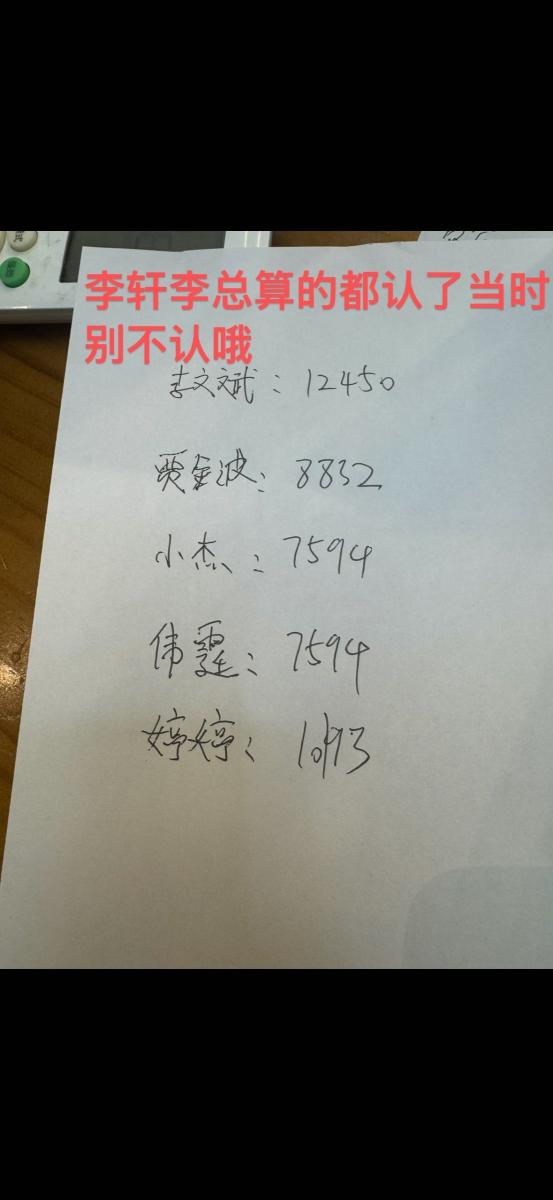 李轩李总算的都认了当时
别不认哦
李文斌：12450
贾金波：8832
小杰：7594
伟霆：7594
婷婷：